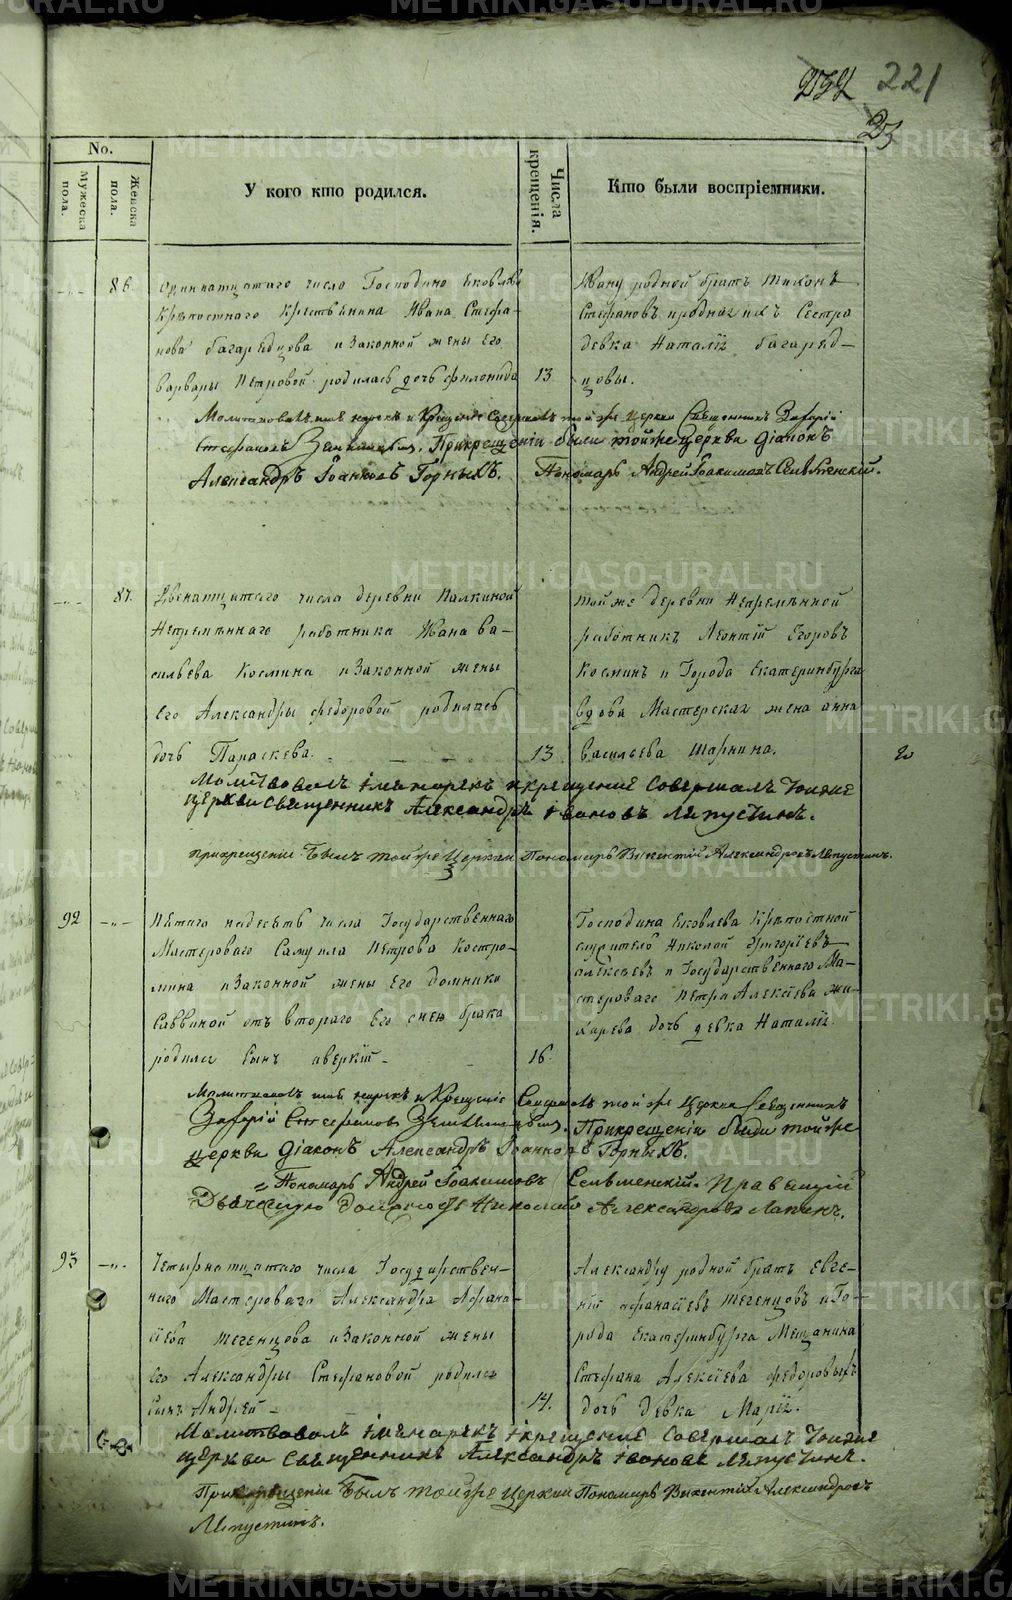 232 221
23
No.
Мужеска пола.
Женска пола.
У кого кто родился.
Числа крещенія.
Кто были воспріемники.
86.
Одиннатцатаго число Господина Яковлева
Крѣпостнаго Крестьянина Ивана Стефа-
нова багарядцова и Законной жены Его
Варвары Петровой родилась дочь филонида 13
Ивану родной братъ Тихонъ
Стефановъ и родная ихъ Сестра
девка Наталія багаряд-
цовы.
Молитвовалъ имя нарекъ и Крещеніе Совершалъ той же Церкви Священникъ Захарій
Стефановъ При крещеніи были той же Церкви діаконъ
Александръ Іоанновъ Горныхъ. Пономарь Андрей Іоакимовъ Сельменскій.
87.
Двенатцатаго числа деревни Палкиной
Непременнаго работника Ивана Ва-
сильева Космина и Законной жены
Его Александры федоровой родилась
дочь Параскева. 13
той же деревни Непременной
работникъ Леонтій Егоровъ
Косминъ и Города Екатеринбурга
вдова Мастерская жена анна
Васильева Шарнина.
Молитвовалъ имя нарекъ и крещеніе Совершалъ тоиже
церкви священникъ Александръ Ивановъ Ляпустинъ.
при крещеніе былъ той же Церкви Пономарь Викентій Александровъ Ляпустинъ.
92
Пятаго надесять числа Государственнаго
Мастероваго Самуила Петрова Костро-
мина и Законной жены Его домники
Саввиной отъ втораго Его с нею брака
родился Сынъ аверкій 16.
Господина Яковлева Крѣпостной
служитель Николай Григорьевъ
алексѣевъ и Государственнаго Ма-
стероваго Петра Алексѣева
дочь девка Наталія.
Молитвовалъ имя нарекъ и Крещеніе Совершалъ той же Церкви Священникъ
Захарій Стефановъ При крещеніи были той же
церкви діаконъ Александръ Іоанновъ Горныхъ.
Пономарь Андрей Іоакимовъ Сельменскій. Правящій
Дьяческую должность Николай Александровъ Лапинъ.
93
Четырнатцатаго числа Государствен-
наго Мастероваго Александра Афана-
сіева Тегенцова и Законной жены
его Александры Стефановой родился
Сынъ Андрей 14.
Александру родной братъ Евге-
ній афанасіевъ Тегенцовъ и Го-
рода Екатеринбурга Мещанина
Стефана Алексіева федоровыхъ
дочь девка Марія.
Молитвовалъ имя нарекъ и крещеніе Совершалъ тоиже
церкви священникъ Александръ Ивановъ Ляпустинъ.
При крещеніе былъ той же Церкви Пономарь Викентій Александровъ
Ляпустинъ.
METRIKI.GASO-URAL.RU